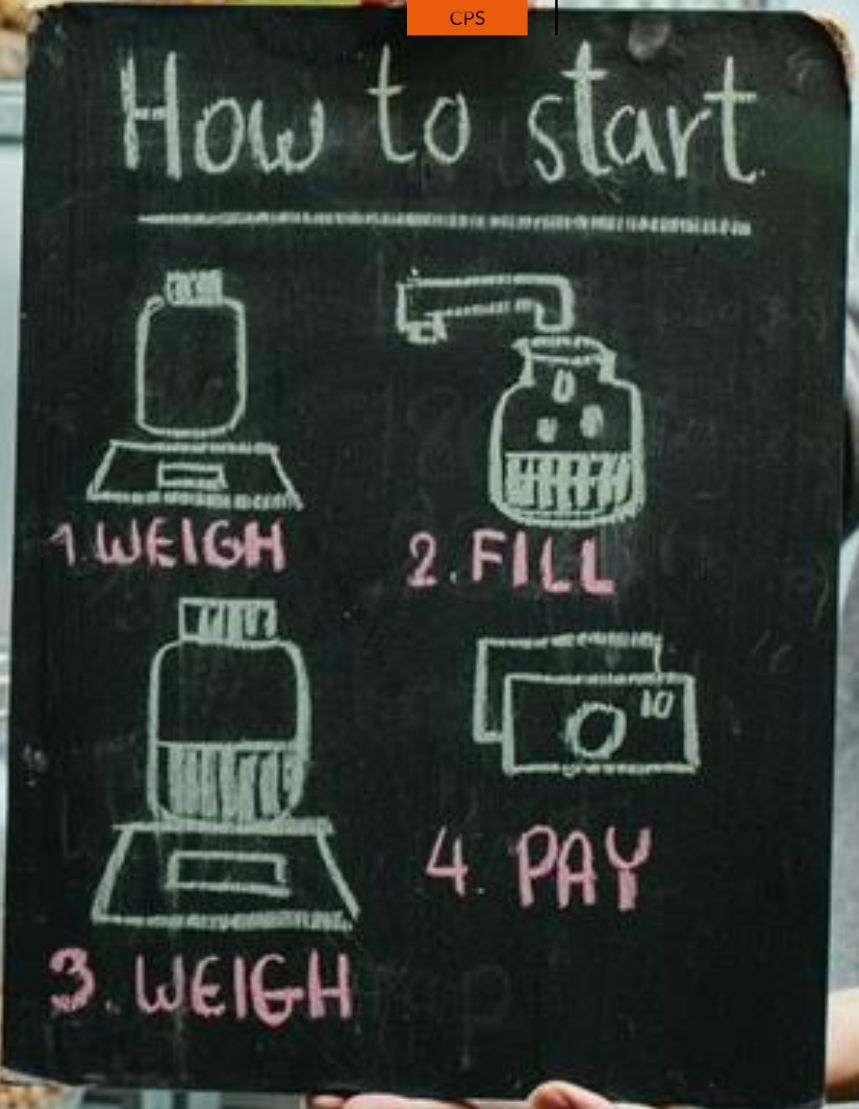 CPS
How to start
1. WEIGH
2. FILL
10
3. WEIGH
4. PAY